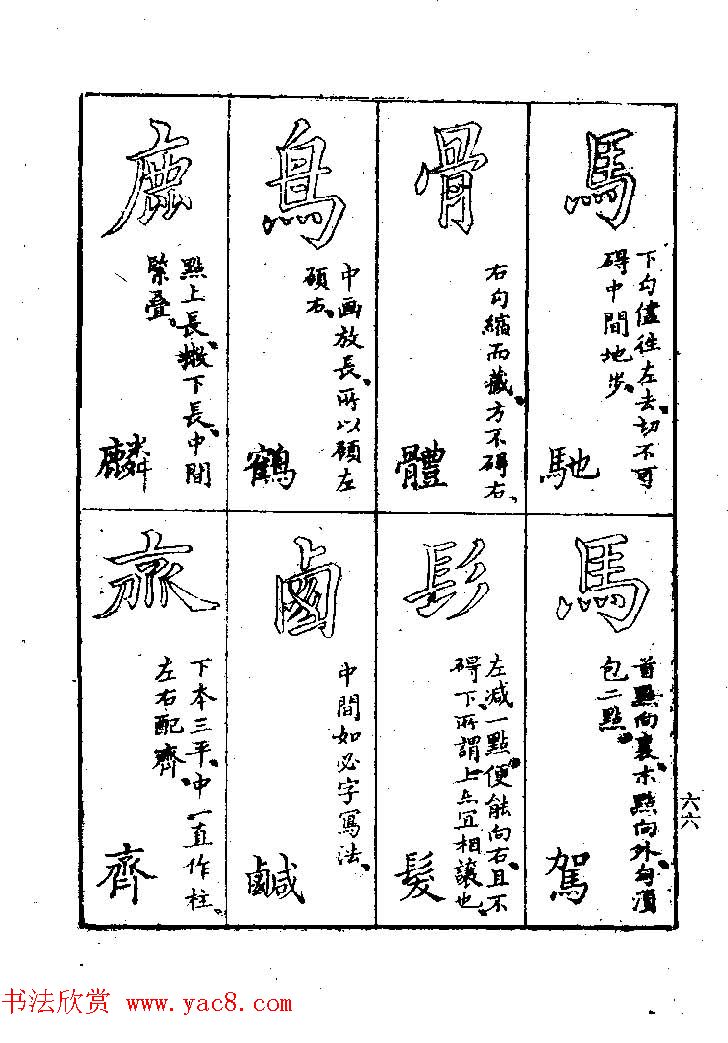 馬
下勾儘徃左去、切不可
碍中間地步、
馳
骨
右勾縮而藏、方不碍右、
體
鳥
中画放長、所以顧左
碩右、
鶴
鹿
點上長、撇下長、中間
緊叠、
麟
馬
首點向裏、末點向外、勾須
包二點、
駕
髟
左减一點、便能向右、且不
碍下、所謂上亦冝相讓也、
髮
鹵
中間如必字寫法、
鹹
下本三平、中一直作柱、
左右配齊、
齊
六六
书法欣赏 www.yac8.com